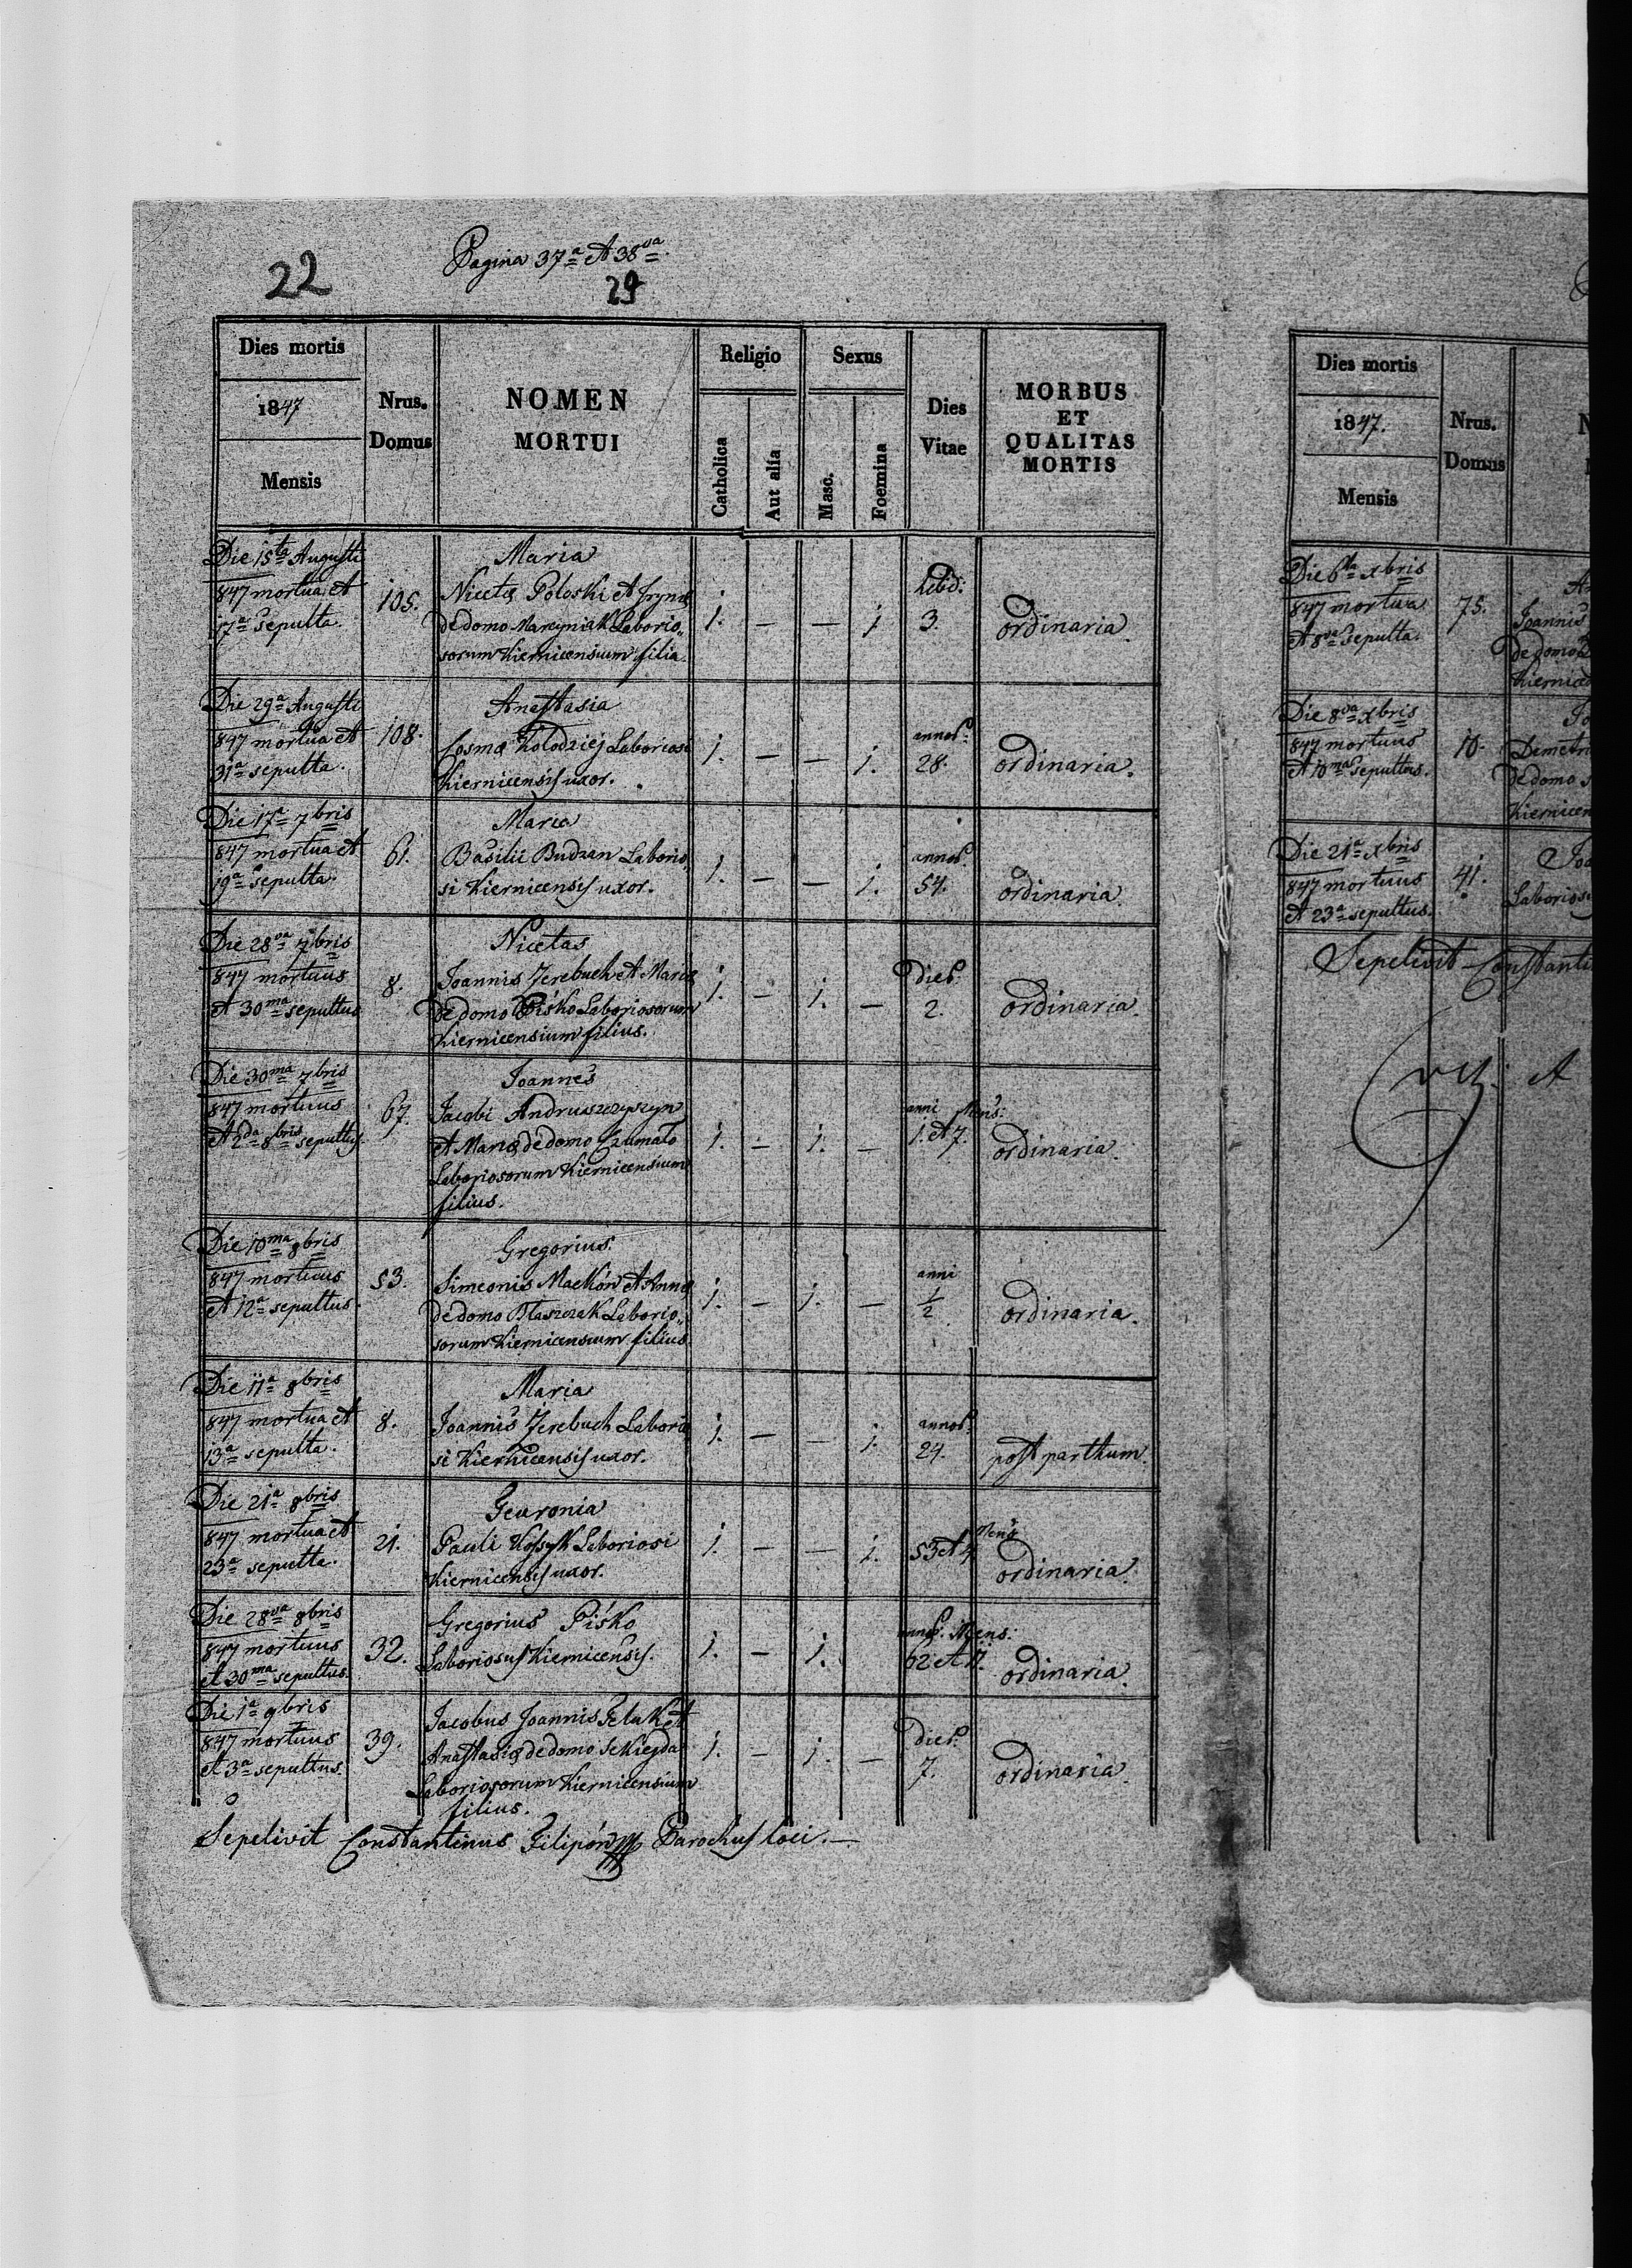 22
Pagina 37a et 38va
29
Dies mortis
1847
Mensis
Nrus.
Domus
NOMEN
MORTUI
Religio
Catholica
Aut alia
Sexus
Masc.
Foemina
Dies
Vitae
MORBUS
ET
QUALITAS
MORTIS
Die 15ta Augusti
847 mortua et
17a sepulta.
105.
Maria
Nicetæ Poloski et Irynæ
de domo Marcyniak Laborio„
sorum Kiernicensium filia.
1. — — 1
Hebd:
3.
ordinaria.
Die 29a Augusti
847 mortua et
31a sepulta.
108.
Anastasia
Cosmæ Kolodziej Laboriosi
Kiernicensis uxor.
1. — — 1.
annor:
28.
ordinaria.
Die 17a 7bris
847 mortua et
19a sepulta.
61.
Maria
Basilii Budzan Laborio„
si Kiernicensis uxor.
1. — — 1.
annor:
54.
ordinaria.
Die 28va 7bris
847 mortuus
et 30ma sepultus
8.
Nicetas
Joannis Jerebuch et Mariæ
de domo Pisko Laboriosorum
Kiernicensium filius.
1. — 1. —
dier:
2.
ordinaria.
Die 30ma 7bris
847 mortuus
et 2da 8bris sepultus.
67.
Joannes
Jacobi Andruszczyszyn
et Mariæ de domo Czumało
Laboriosorum Kiernicensium
filius.
1. — 1. —
anni Mens:
1. et 7.
ordinaria.
Die 10ma 8bris
847 mortuus
et 12a sepultus.
53.
Gregorius.
Simeonis Mackón et Annæ
de domo Błaszczak Laborio„
sorum Kiernicensium filius.
1. — 1. —
anni
1/2
ordinaria.
Die 11a 8bris
847 mortua et
13a sepulta.
8.
Maria
Joannis Jerebuch Laborio
si Kiernicensis uxor.
1. — — 1.
annor:
24.
post parthum.
Die 21a 8bris
847 mortua et
23a sepulta.
21.
Gevronia
Pauli Laboriosi
Kiernicensis uxor.
1. — — 1.
Mens
53 et 4
ordinaria.
Die 28va 8bris
847 mortuus
et 30ma sepultus.
32.
Gregorius Pisko
Laboriosus Kiernicensis.
1. — 1.
annor. Mens:
62 et
ordinaria.
Die 1a 9bris
847 mortuus
et 3a sepultus.
39.
Jacobus Joannis et
Anastasiæ de domo
Laboriosorum Kiernicensium
filius.
1. — 1. —
dier:
7.
ordinaria.
Sepelivit Constantinus Filipón Parochus loci. —
Dies mortis
1847.
Mensis
Nrus.
Domus
Die 6ta xbris
847 mortua
et 8va sepulta.
75.
Joannis
de domo
Die 8va xbris
847 mortuus
et 10ma sepultus.
10.
de domo
Die 21a xbris
847 mortuus
et 23a sepultus.
41.
Sepelivit Constanti